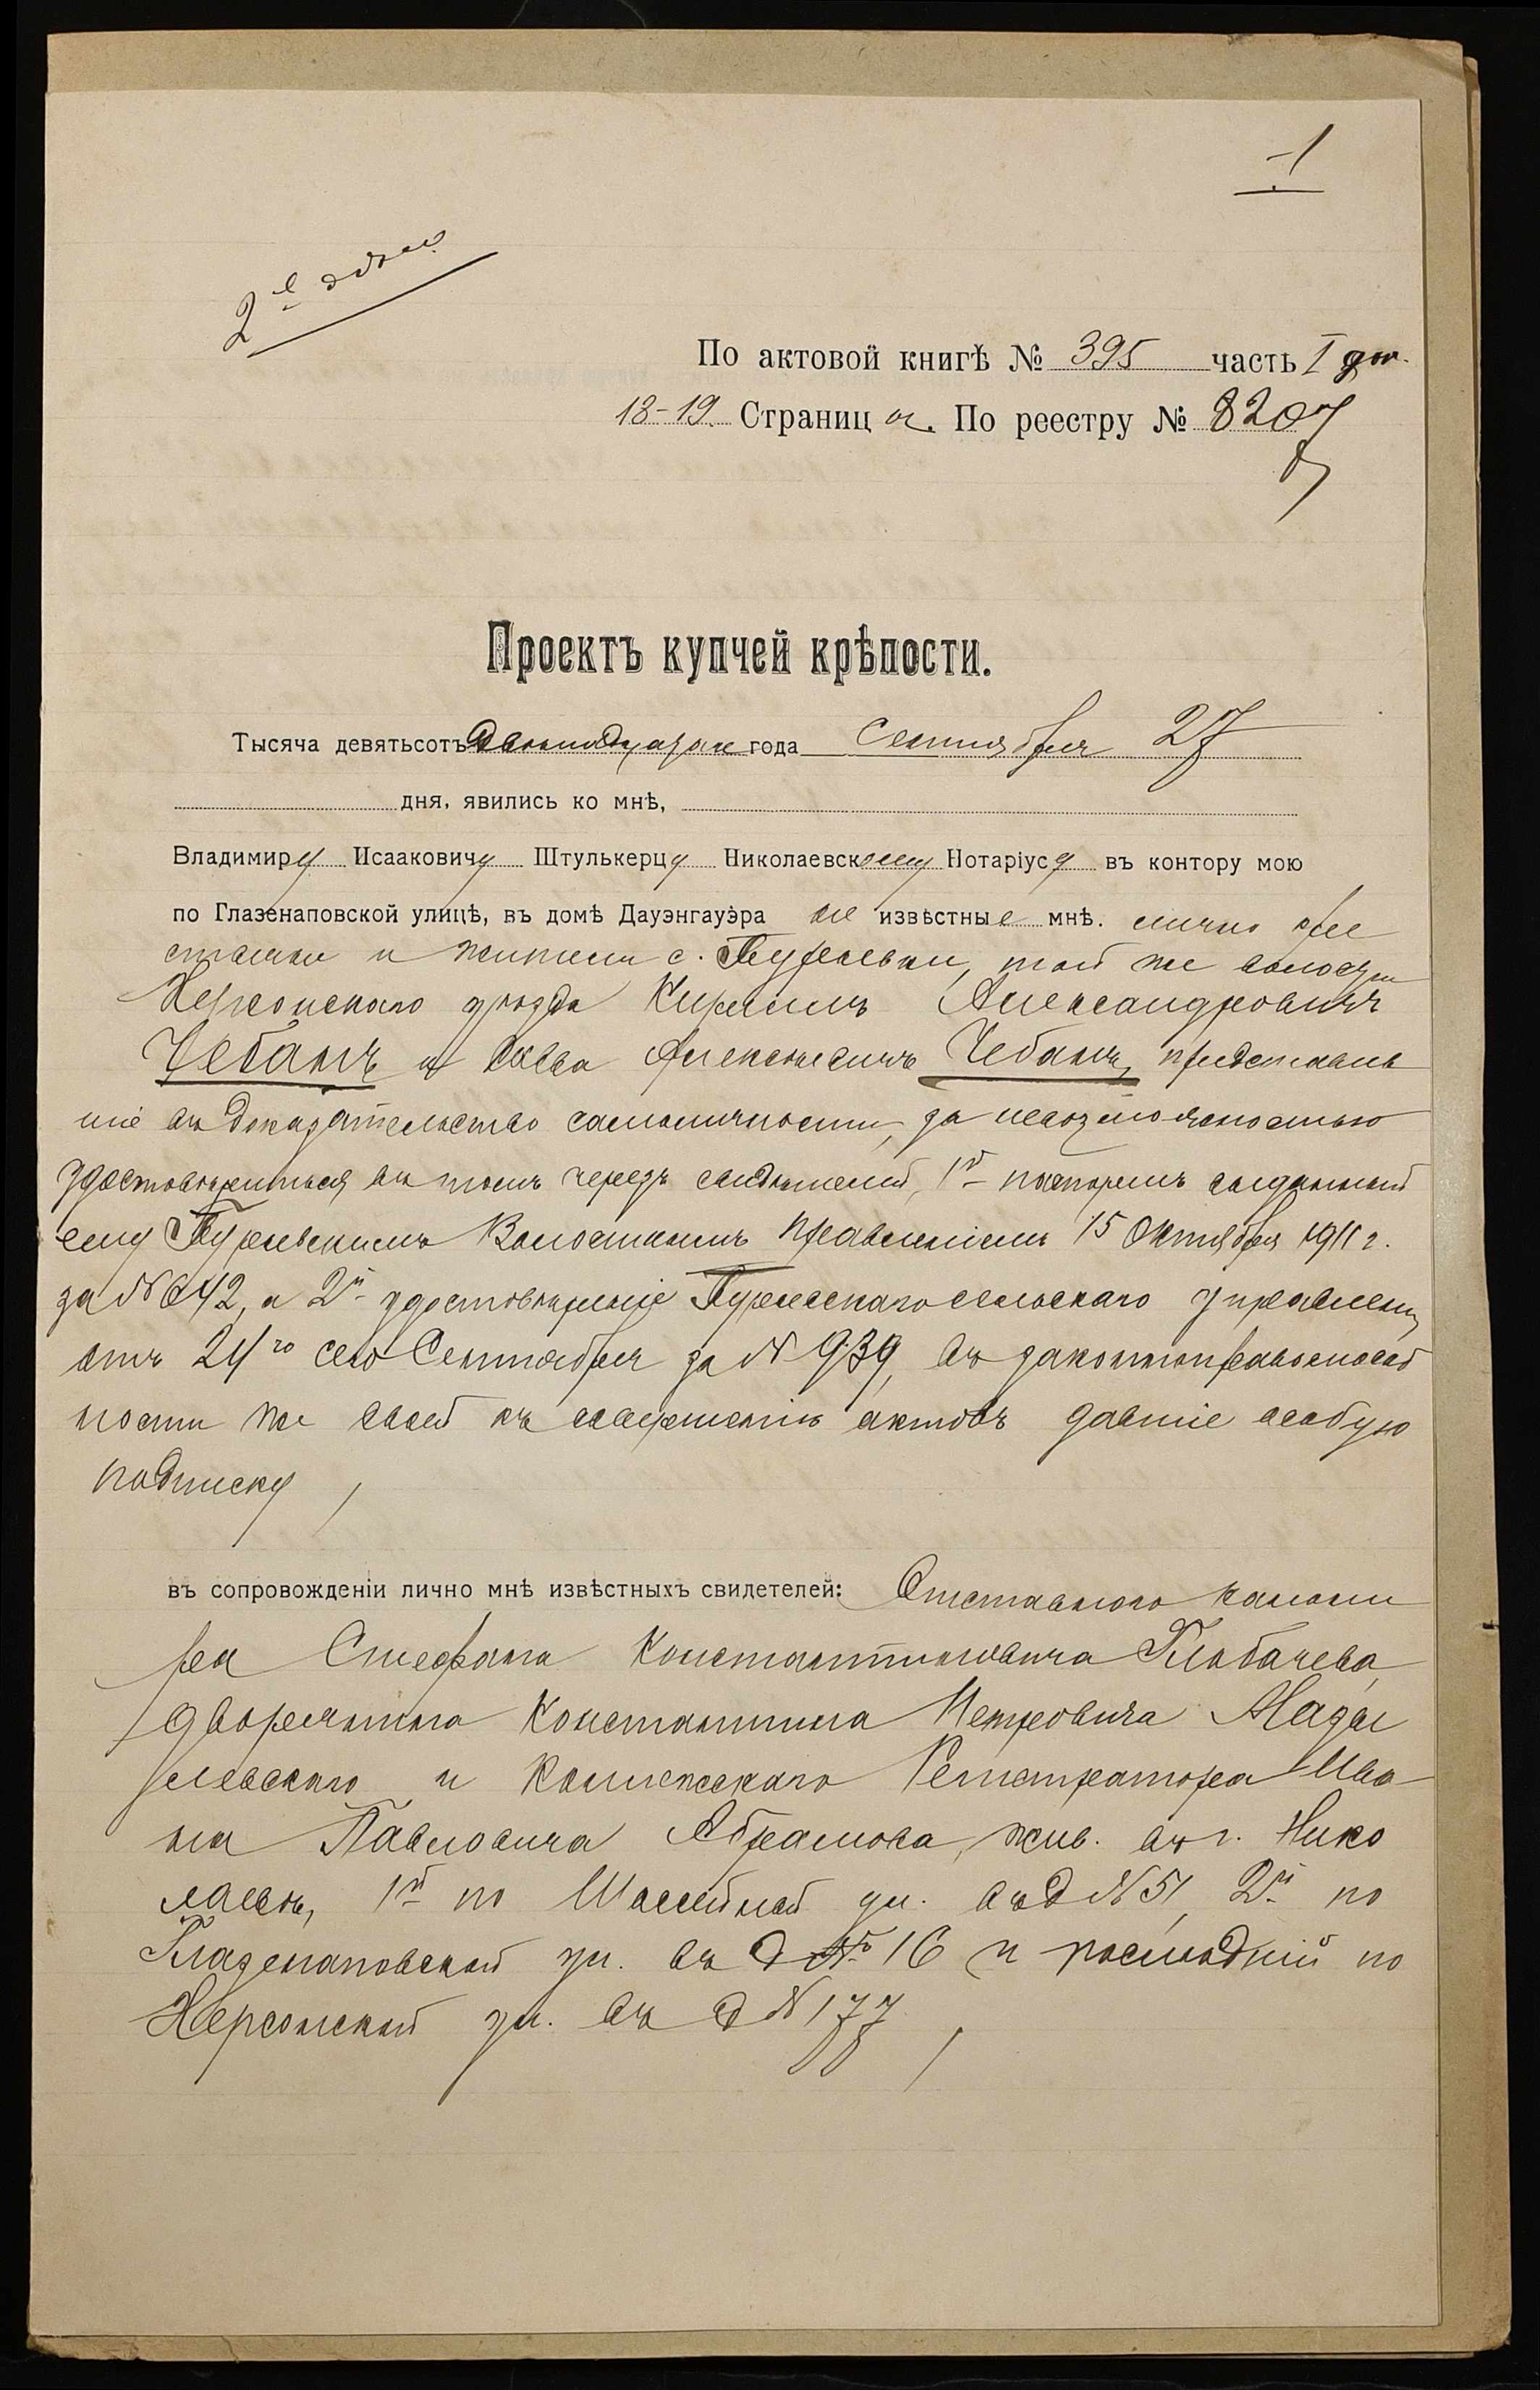 1
2е
По актовой книгѣ № 395 часть I
18-19. Страница. По реестру № 8207
Проектъ купчей крѣпости.
Тысяча девятьсотъ двѣнадцатаго года Сентября 27
дня, явились ко мнѣ,
Владимиру Исааковичу Штулькерцу Николаевскому Нотаріусу въ контору мою
по Глазенаповской улицѣ, въ домѣ Дауэнгауэра не извѣстные мнѣ. лично кре
стьяне и жители с. Пуреевки, той же волости
Херсонскаго уѣзда Кириллъ Александровичъ
Чебанъ и Савва Алексѣевичъ Чебанъ, представив
шіе въ доказательство самоличности, за невозможностью
удостовѣриться въ томъ черезъ свидѣтелей, 1й паспортъ выданный
ему Волостнымъ Правленіемъ 15 Октября 1911 г.
за № 642, а 2й удостовѣреніе сельскаго управленія
отъ 24го сего Сентября за № 939, въ законноправоспособ
ности же своей къ совершенію актовъ давшіе особую
подписку
въ сопровожденіи лично мнѣ извѣстныхъ свидетелей: Отставного канони
ра Стефана Константиновича Глобачева,
дворянина Константина Петровича
и Коллежскаго Регистратора Ива
на Павловича Абрамова, жив. въ г. Нико
лаевѣ, 1й по Шоссейной ул. въ д № 51, 2й по
Глазенаповской ул. въ д № 16 и послѣдній по
Херсонской ул. въ д № 177